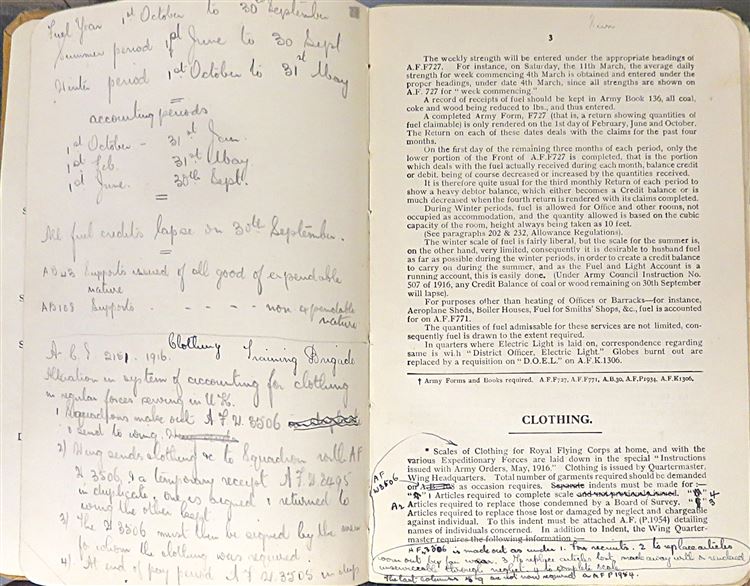 Fuel Year 1st October to 30th September
Summer period 1st June to 30 Sept
Winter period 1st October to 31st May
accounting periods
1st October - 31st Jan.
1st Feb. 31st May
1st June. 30th Sept.
All fuel credits lapse on 30th September.
AB 43 Supports issued of all good of expendable
nature
AB 108 Supports - - - - - non expendable
nature
Clothing
A.C.I 2181. 1916. Training Brigade
Alteration in system of accounting for clothing
in regular forces serving in U.K.
1 Squadrons make out A F H. 3506
& send to wing.
2) Wing sends clothing &c to Squadron with AF
H. 3506, & a temporary receipt A F H 3495
in duplicate, one is signed & returned to
wing the other kept.
3) The H 3506 must then be signed by the
for whom the clothing was required.
4) At end of pay period A F H. 3505 in dup
3
The weekly strength will be entered under the appropriate headings of
A.F.F727. For instance, on Saturday, the 11th March, the average daily
strength for week commencing 4th March is obtained and entered under the
proper headings, under date 4th March, since all strengths are shown on
A.F. 727 for "week commencing."
A record of receipts of fuel should be kept in Army Book 136, all coal,
coke and wood being reduced to lbs., and thus entered.
A completed Army Form, F727 (that is, a return showing quantities of
fuel claimable) is only rendered on the 1st day of February, June and October.
The Return on each of these dates deals with the claims for the past four
months.
On the first day of the remaining three months of each period, only the
lower portion of the Front of A.F.F727 is completed, that is the portion
which deals with the fuel actually received during each month, balance credit
or debit, being of course decreased or increased by the quantities received.
It is therefore quite usual for the third monthly Return of each period to
show a heavy debtor balance, which either becomes a Credit balance or is
much decreased when the fourth return is rendered with its claims completed.
During Winter periods, fuel is allowed for Office and other rooms, not
occupied as accommodation, and the quantity allowed is based on the cubic
capacity of the room, height always being taken as 10 feet.
(See paragraphs 202 & 232, Allowance Regulations).
The winter scale of fuel is fairly liberal, but the scale for the summer is,
on the other hand, very limited, consequently it is desirable to husband fuel
as far as possible during the winter periods, in order to create a credit balance
to carry on during the summer, and as the Fuel and Light Account is a
running account, this is easily done. (Under Army Council Instruction No.
507 of 1916, any Credit Balance of coal or wood remaining on 30th September
will lapse).
For purposes other than heating of Offices or Barracks—for instance,
Aeroplane Sheds, Boiler Houses, Fuel for Smiths' Shops, &c., fuel is accounted
for on A.F.F771.
The quantities of fuel admissable for these services are not limited, con-
sequently fuel is drawn to the extent required.
In quarters where Electric Light is laid on, correspondence regarding
same is with "District Officer, Electric Light." Globes burnt out are
replaced by a requisition on "D.O.E.L." on A.F.K1306.
† Army Forms and Books required. A.F.F727, A.F.F771, A.B.30, A.F.P1934, A.F.K1306,
CLOTHING.
* Scales of Clothing for Royal Flying Corps at home, and with the
various Expeditionary Forces are laid down in the special "Instructions
issued with Army Orders, May, 1916." Clothing is issued by Quartermaster,
Wing Headquarters. Total number of garments required should be demanded
AF
H3506
on as occasion requires. Separate indents must be made for:—
1 Articles required to complete scale 4
A2 Articles required to replace those condemned by a Board of Survey. 3
Articles required to replace those lost or damaged by neglect and chargeable
against individual. To this indent must be attached A.F. (P.1954) detailing
names of individuals concerned. In addition to Indent, the Wing Quarter-
master requires the following information:—
A.F. 3506 is made out as under 1. For recruits. 2 to replace articles
worn out by fair wear. 3 To replace articles lost, made away with or rendered
unserviceable through neglect 4 to complete scale.
The last columns 8 & 9 are not now required A.F.P1954.